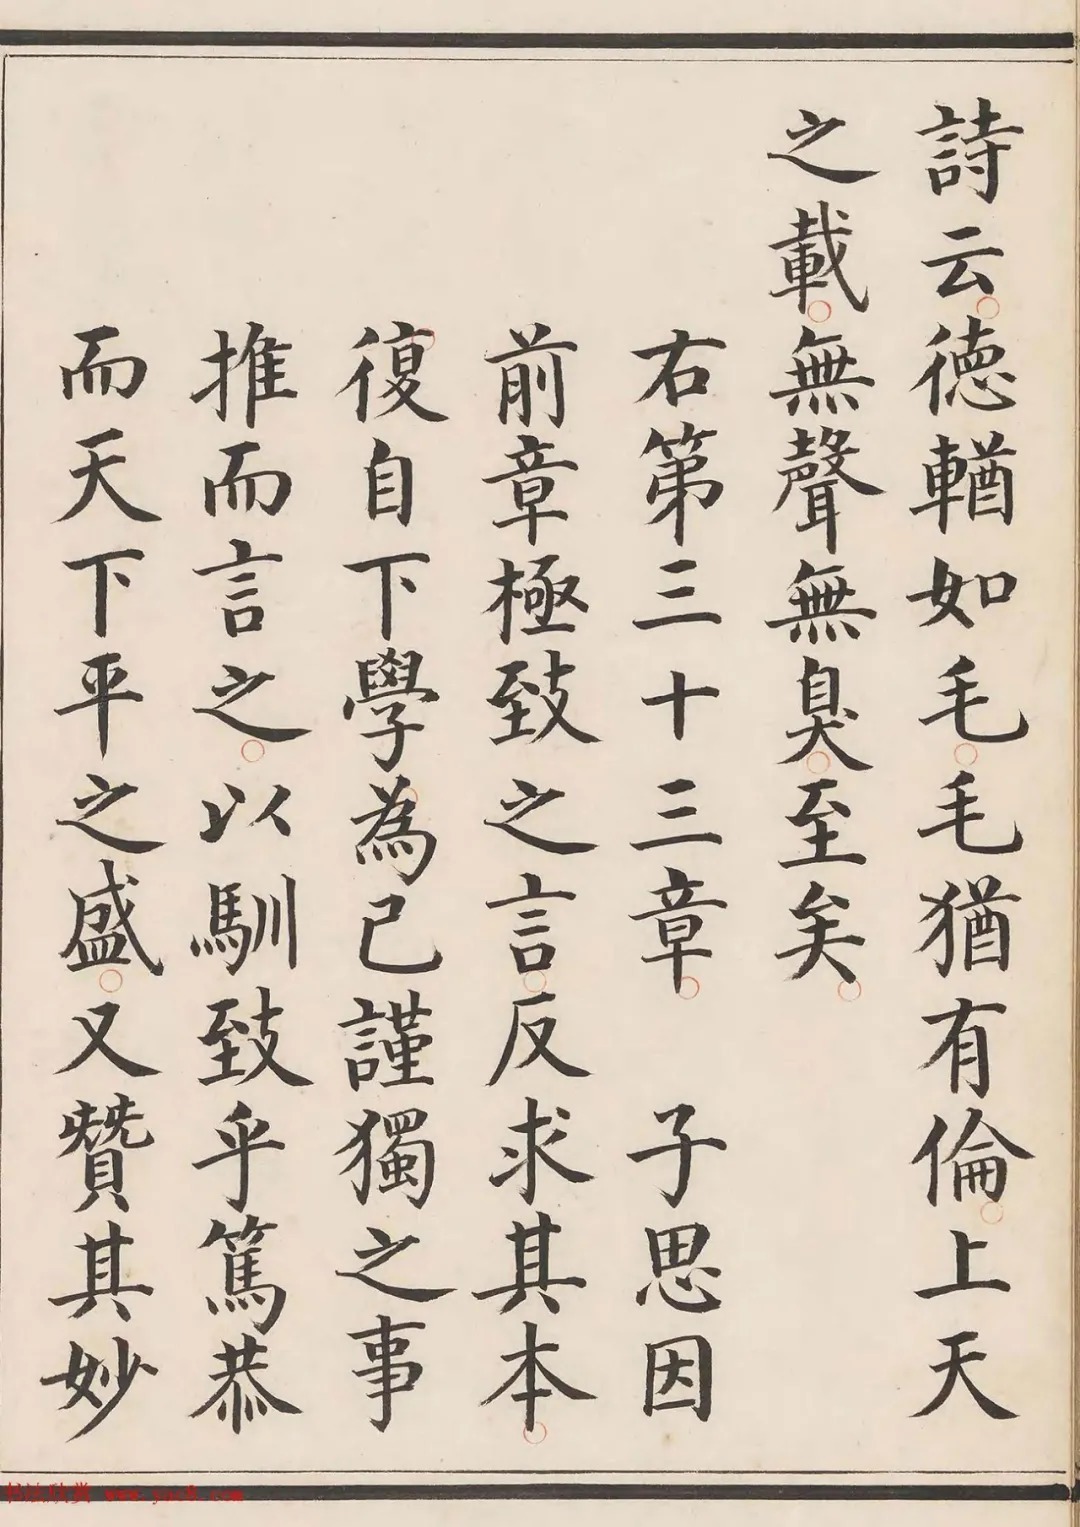 詩云德輶如毛毛猶有倫上天
之載無聲無臭至矣
右第三十三章 子思因
前章極致之言反求其本
復自下學為己謹獨之事
推而言之以馴致乎篤恭
而天下平之盛又贊其妙
书法欣赏 www.yac8.com